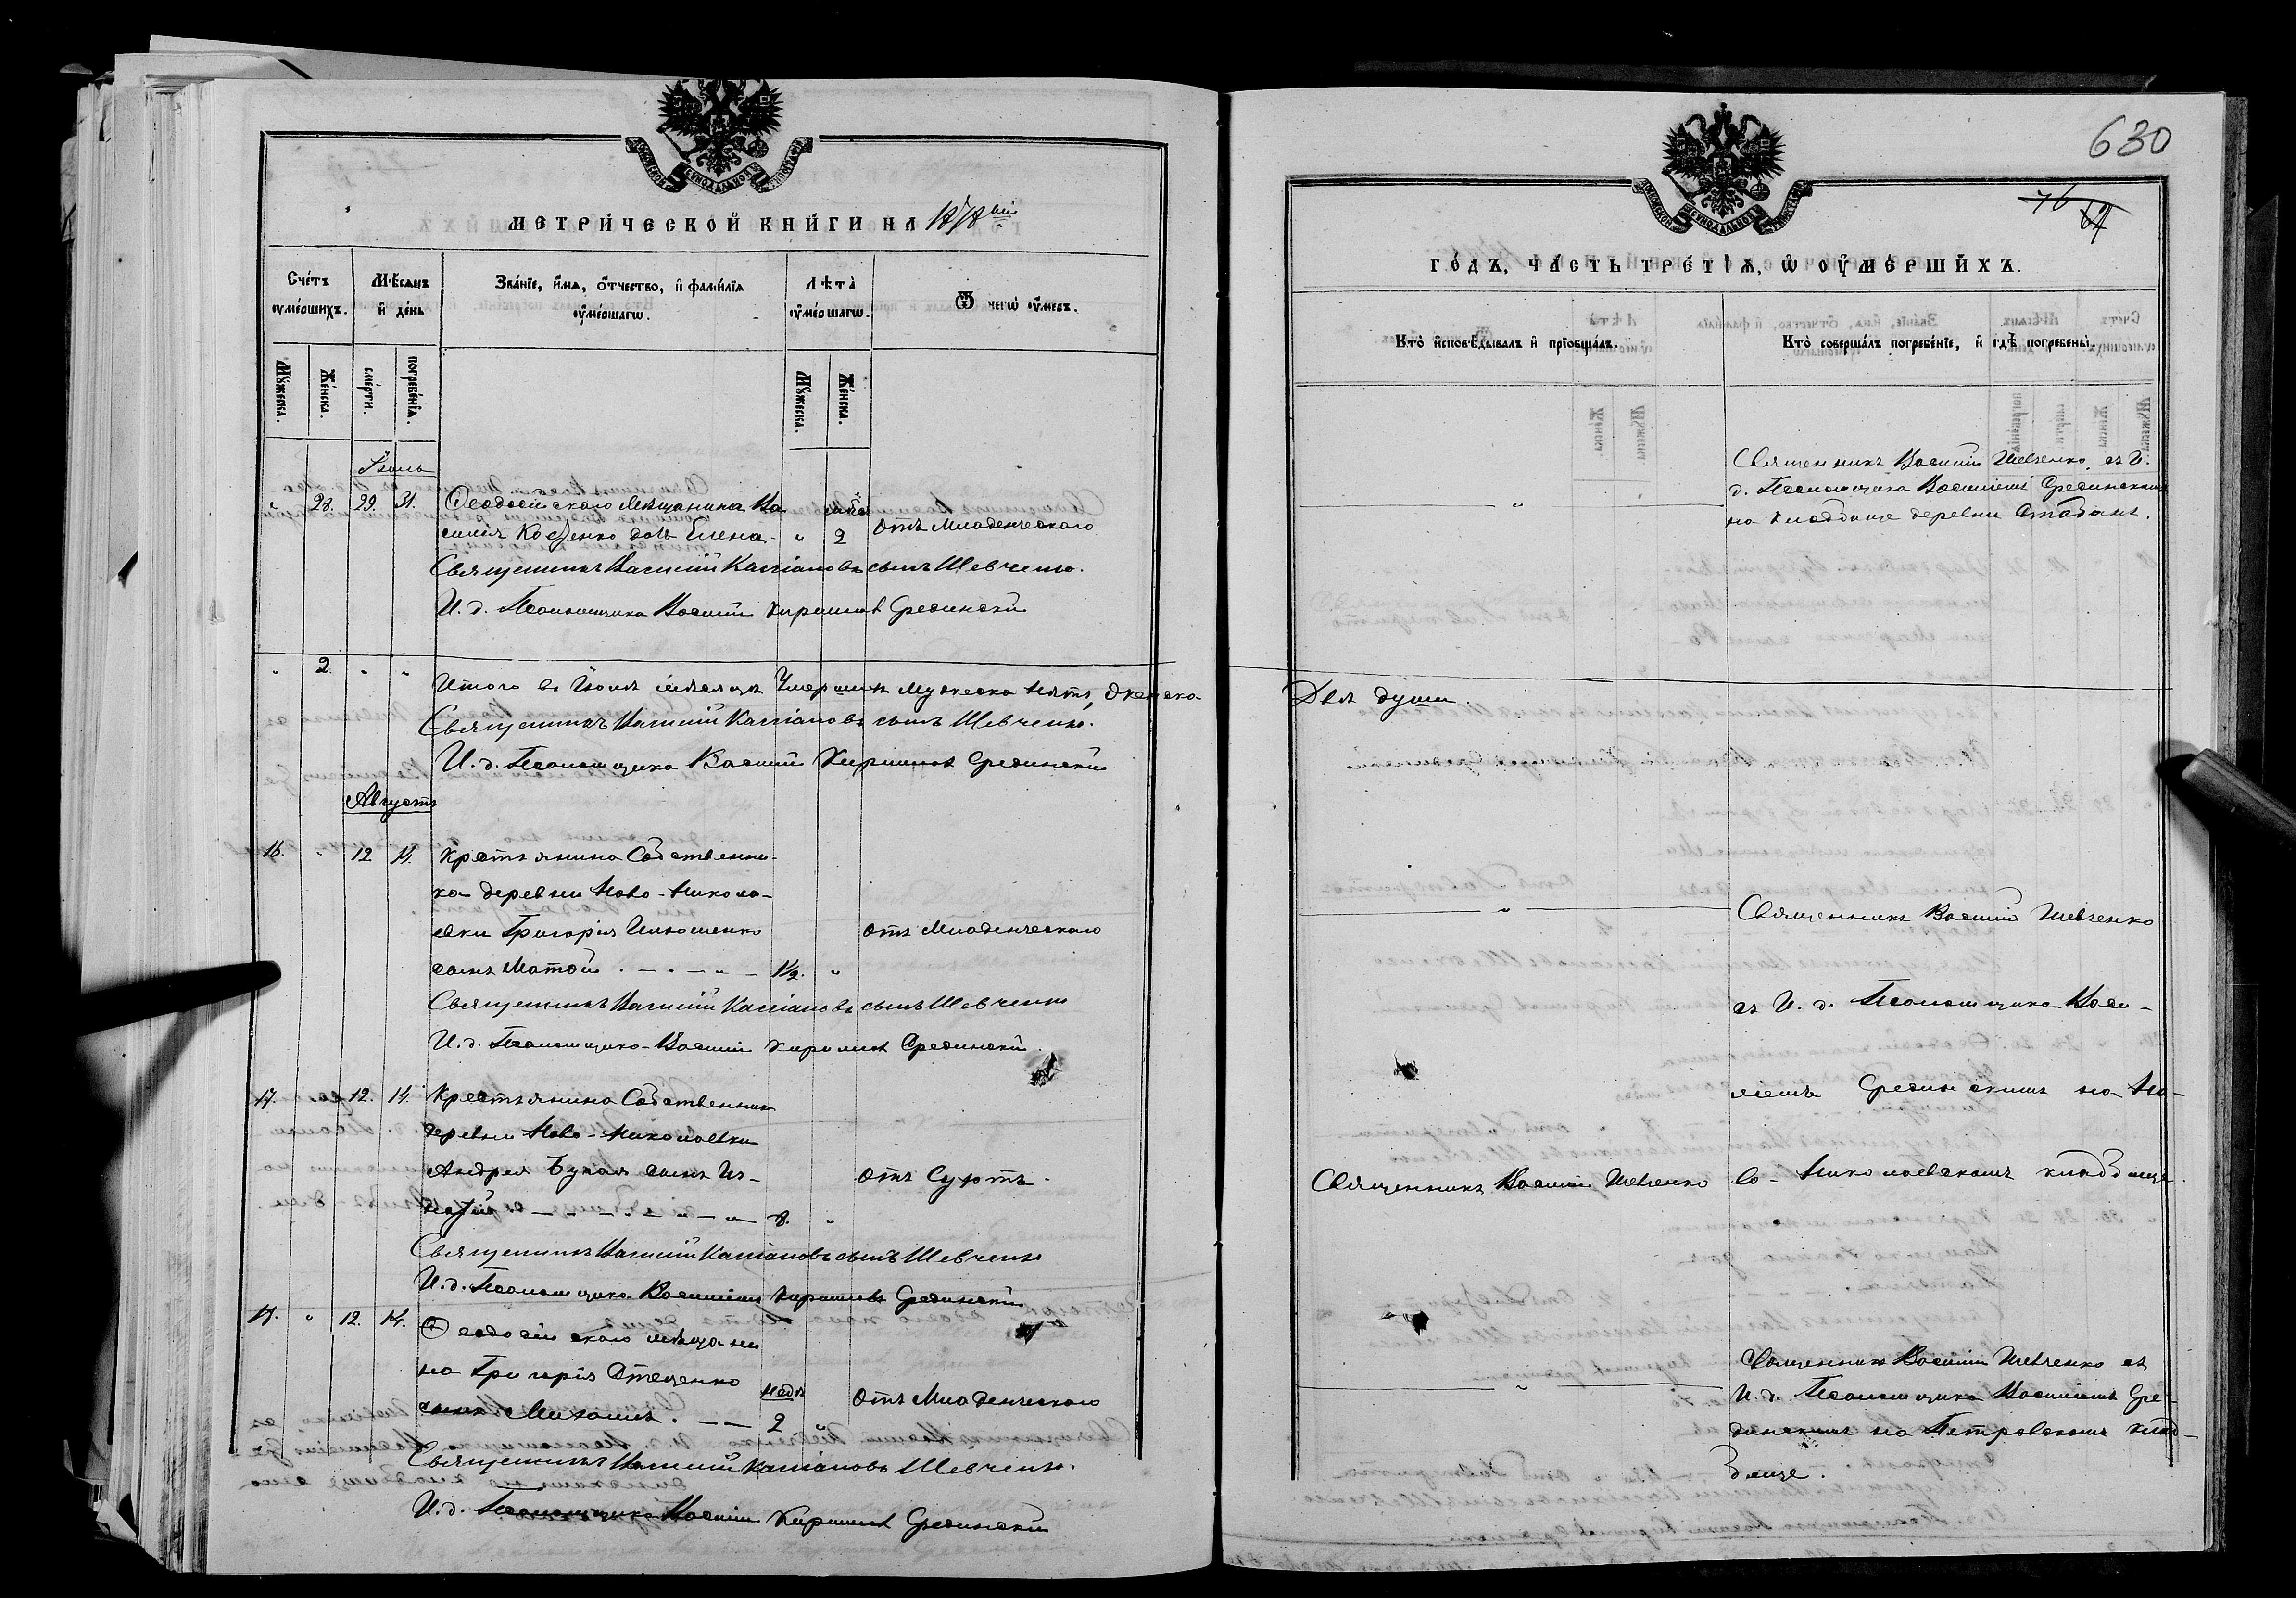 МЕТРИ́ЧЕСКОЙ КНИ́ГИ НА 1878ый
Сче́тъ ᲂу҆ме́ршихъ.
Мѣ́сяцъ и҆ де́нь
Зва́нїе, и҆́мя, ѻ҆́тчество, и҆ фами́лїя ᲂу҆ме́ршагѡ.
Лѣта̀ ᲂу҆ме́ршагѡ.
Ѿ чегѡ̀ ᲂу҆́меръ.
Мꙋ́жеска.
Же́нска.
сме́рти.
погребе́нїя.
Мꙋ́жеска.
Же́нска.
Іюль
" 28. 29. 31. Ѳеодосійскаго мѣщанина Ва
силія дочь Елена - " 2 отъ младенческаго
Священникъ Василій Кассіановъ сынъ Шевченко.
И. д. Псаломщика Василій Кириловъ Срединскій
" 2. " "
Итого въ Іюлѣ мѣсяцѣ умершихъ мужеска нѣтъ, женска
Священникъ Василій Кассіановъ сынъ Шевченко.
И. д. Псаломщика Василій Кириловъ Срединскій
Августъ
16. " 12 14. Крестьянина Собственни-
ка деревни Ново-Никола-
евки Григорія отъ младенческаго
сынъ 1½. "
Священникъ Василій Кассіановъ сынъ Шевченко
И. д. Псаломщика Василій Кириловъ Срединскій.
17. 12. 14. Крестьянина Собственника
деревни Ново-Николаевки
Андрея сынъ Иг-
отъ Суютъ.
натій 8. "
Священникъ Василій Кассіановъ сынъ Шевченко
И. д. Псаломщика Василій Кириловъ Срединскій
18. " 12. 14. Ѳеодосійскаго мѣщани
на Григорія Стеценко
сынъ Михаилъ. недѣ. 2 " отъ младенческаго
Священникъ Василій Кассіановъ Шевченко.
И. д. Псаломщика Василій Кириловъ Срединскій
630
76
ГО́ДЪ, ЧА́СТЬ ТРЕ́ТІѦ, Ѡ҆ ОУ҆МЕ́РШИХЪ.
Кто̀ и҆сповѣ́дывалъ и҆ прїѻбща́лъ.
Кто̀ соверша́лъ погребе́нїе, и҆ гдѣ̀ погребены̀.
Священникъ Василій Шевченко съ И.
д. Псаломщика Василіемъ Срединскимъ
на кладбище деревни
Двѣ души.
Священникъ Василій Шевченко
съ И. д. Псаломщика Васи-
ліемъ Срединскимъ на Но-
Священникъ Василій Шевченко во-Николаевскомъ кладбищѣ.
Священникъ Василій Шевченко съ
И. д. Псаломщика Василіемъ Сре-
динскимъ на Петровскомъ клад-
бище.